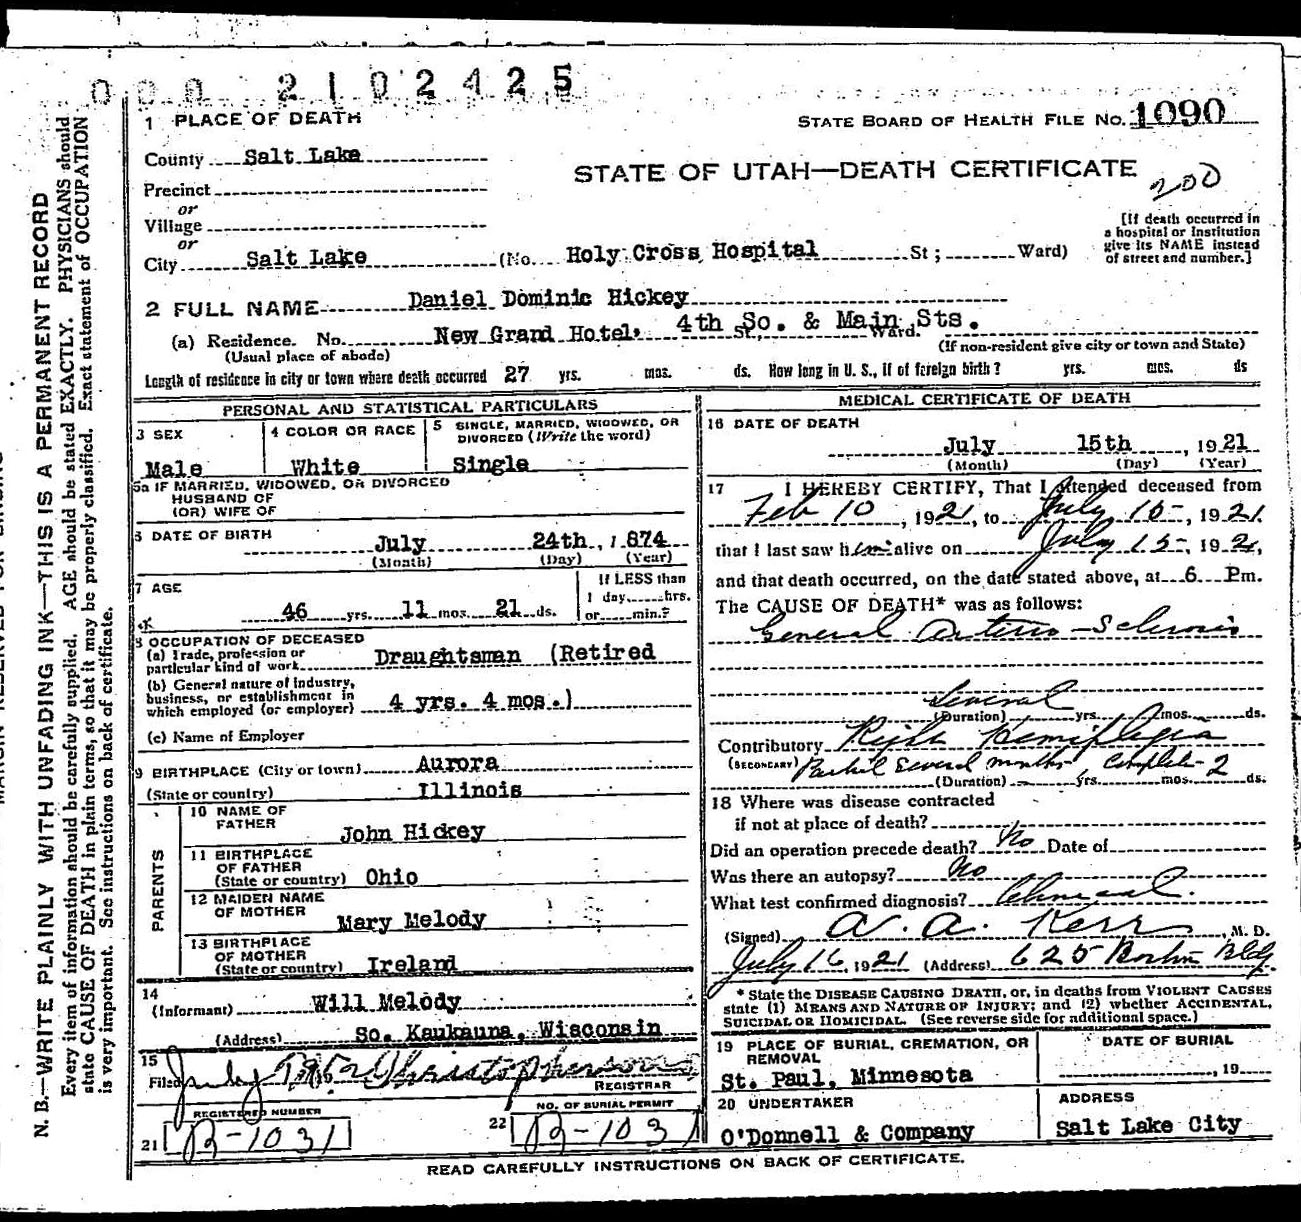 000 2102425
1 PLACE OF DEATH
STATE BOARD OF HEALTH FILE NO. 1090
County Salt Lake
STATE OF UTAH—DEATH CERTIFICATE
200
Precinct
or
Village
or
City Salt Lake (No. Holy Cross Hospital St; Ward)
[If death occurred in
a hospital or institution
give its NAME instead
of street and number.]
2 FULL NAME Daniel Dominic Hickey
(a) Residence. No. New Grand Hotel, 4th So. & Main Sts. St., Ward.
(Usual place of abode) (If non-resident give city or town and State)
Length of residence in city or town where death occurred 27 yrs. mos. ds. How long in U. S., if of foreign birth? yrs. mos. ds
PERSONAL AND STATISTICAL PARTICULARS
3 SEX
Male
4 COLOR OR RACE
White
5 SINGLE, MARRIED, WIDOWED, OR
DIVORCED (Write the word)
Single
5a IF MARRIED, WIDOWED, OR DIVORCED
HUSBAND OF
(OR) WIFE OF
6 DATE OF BIRTH
July 24th, 1874
(Month) (Day) (Year)
7 AGE
46 yrs. 11 mos. 21 ds.
If LESS than
1 day......hrs.
or......min.?
8 OCCUPATION OF DECEASED
(a) Trade, profession or
particular kind of work Draughtsman (Retired
(b) General nature of industry,
business, or establishment in
which employed (or employer) 4 yrs. 4 mos.)
(c) Name of Employer
9 BIRTHPLACE (City or town) Aurora
(State or country) Illinois
PARENTS
10 NAME OF
FATHER
John Hickey
11 BIRTHPLACE
OF FATHER
(State or country) Ohio
12 MAIDEN NAME
OF MOTHER
Mary Melody
13 BIRTHPLACE
OF MOTHER
(State or country) Ireland
14
(Informant) Will Melody
(Address) So. Kaukauna, Wisconsin
15
Filed July
REGISTRAR
REGISTERED NUMBER
21 B-1031
NO. OF BURIAL PERMIT
22 B-1031
MEDICAL CERTIFICATE OF DEATH
16 DATE OF DEATH
July 15th, 1921
(Month) (Day) (Year)
17 I HEREBY CERTIFY, That I attended deceased from
Feb 10, 1921, to July 15, 1921
that I last saw him alive on July 15, 1921,
and that death occurred, on the date stated above, at 6 Pm.
The CAUSE OF DEATH* was as follows:
General Arterio-Sclerosis
Several
(Duration) yrs. mos. ds.
Contributory Right Hemiplegia
(SECONDARY) Partial several months Complete 2
(Duration) yrs. mos. ds.
18 Where was disease contracted
if not at place of death?
Did an operation precede death? No Date of
Was there an autopsy? No
What test confirmed diagnosis? Clinical.
(Signed) A. A. Kerr, M. D.
July 16, 1921 (Address) 625 Boston Bldg.
* State the DISEASE CAUSING DEATH, or, in deaths from VIOLENT CAUSES
state (1) MEANS AND NATURE OF INJURY; and (2) whether ACCIDENTAL,
SUICIDAL OR HOMICIDAL. (See reverse side for additional space.)
19 PLACE OF BURIAL, CREMATION, OR
REMOVAL
St. Paul, Minnesota
DATE OF BURIAL
, 19
20 UNDERTAKER
O'Donnell & Company
ADDRESS
Salt Lake City
READ CAREFULLY INSTRUCTIONS ON BACK OF CERTIFICATE.
N. B.—WRITE PLAINLY WITH UNFADING INK—THIS IS A PERMANENT RECORD
Every item of information should be carefully supplied. AGE should be stated EXACTLY. PHYSICIANS should
state CAUSE OF DEATH in plain terms, so that it may be properly classified. Exact statement of OCCUPATION
is very important. See instructions on back of certificate.